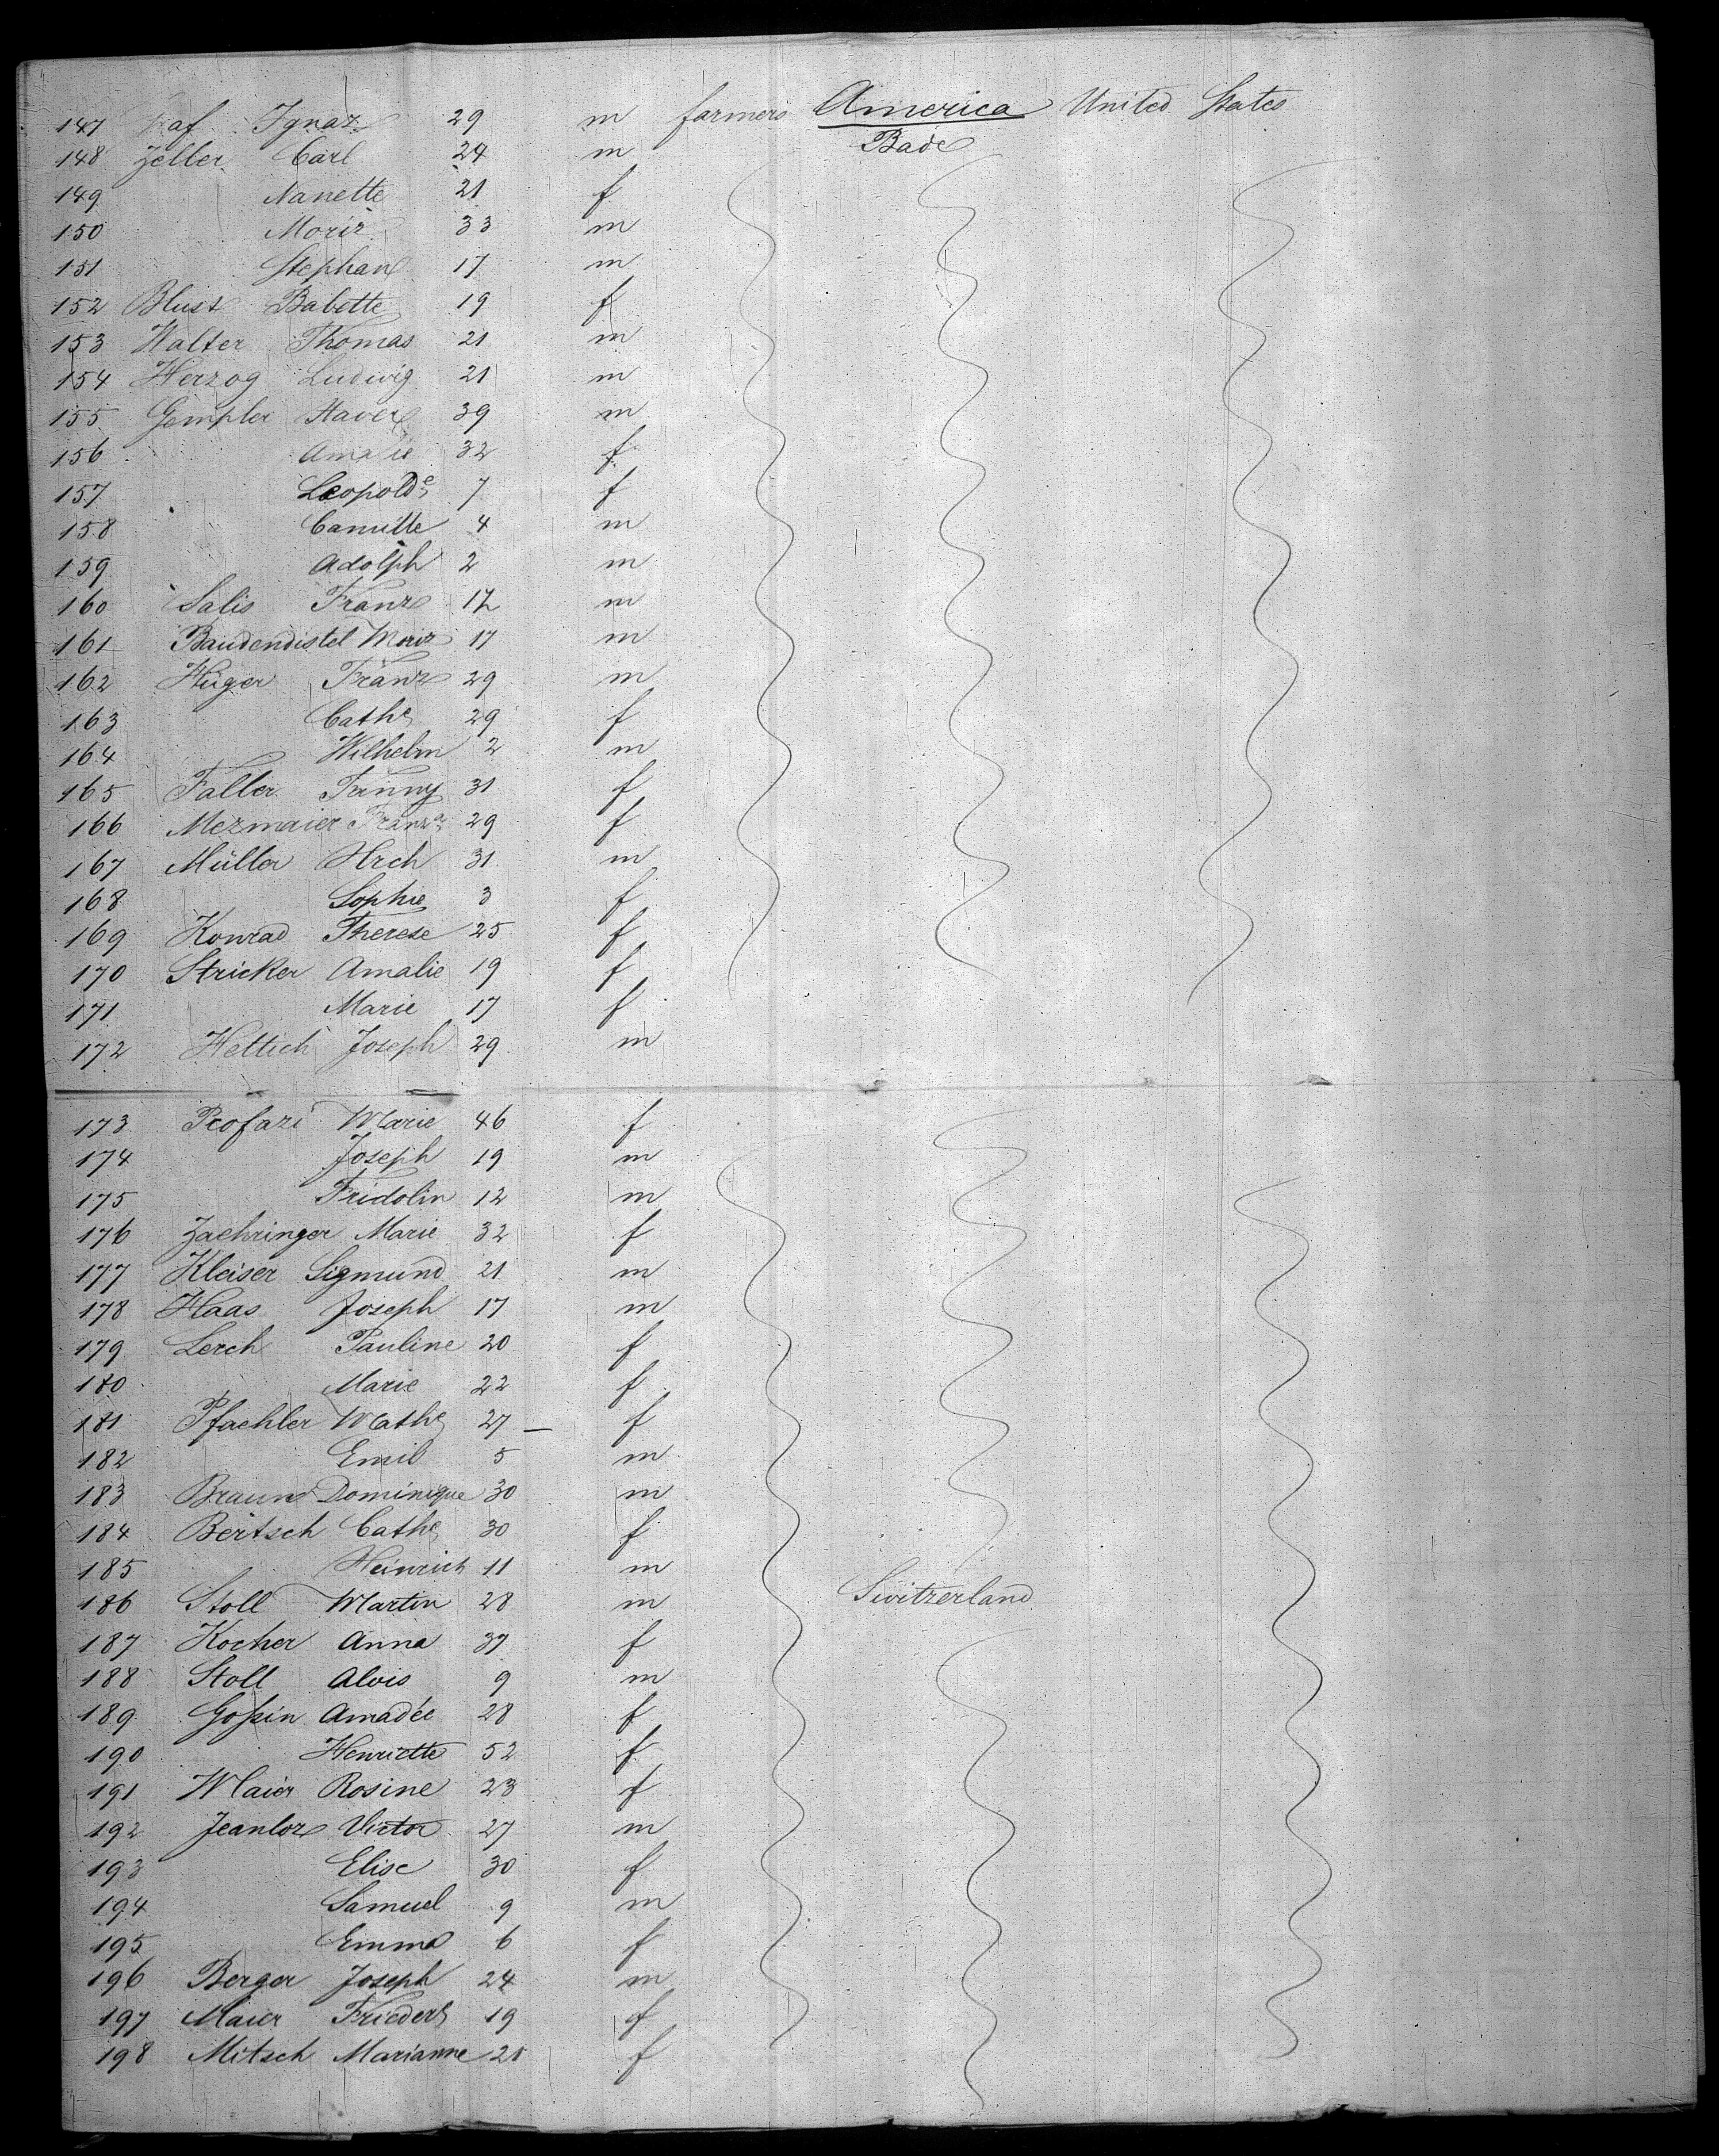 147 Ignaz 29 m farmers America United States
148 Zeller Carl 24 m Bade
149 Nanette 21 f
150 Moriz 33 m
151 Stephan 17 m
152 Blust Babette 19 f
153 Walter Thomas 21 m
154 Herzog Ludwig 21 m
155 Gempler Xaver 39 m
156 Amalie 32 f
157 Leopolde 7 f
158 Camille 4 m
159 Adolph 2 m
160 Salis Franz 17 m
161 Baudendistel Moriz 17 m
162 Hüger Franz 29 m
163 Cathe 29 f
164 Wilhelm 2 m
165 Faller Fanny 31 f
166 Mezmaier Franza 29 f
167 Müller Hrch 31 m
168 Sophie 3 f
169 Konrad Therese 25 f
170 Stricker Amalie 19 f
171 Marie 17 f
172 Hettich Joseph 29 m
173 Marie 46 f
174 Joseph 19 m
175 Fridolin 12 m
176 Zaehringer Marie 32 f
177 Kleiser Sigmund 21 m
178 Haas Joseph 17 m
179 Lerch Pauline 20 f
180 Marie 22 f
181 Pfaehler Mathe 27 — f
182 Emil 5 m
183 Braun Dominique 30 m
184 Bertsch Cathe 30 f
185 Heinrich 11 m
186 Stoll Martin 28 m Switzerland
187 Kocher Anna 37 f
188 Stoll Alois 9 m
189 Goßin Amadée 28 f
190 Henriette 52 f
191 Maier Rosine 23 f
192 Jeanloz Victor 27 m
193 Elise 30 f
194 Samuel 9 m
195 Emma 6 f
196 Berger Joseph 24 m
197 Maier Friedere 19 f
198 Mitsch Marianne 21 f